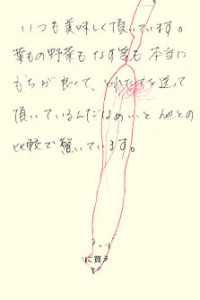 いつも美味しく頂いています。
葉もの野菜もなす等も本当に
もちが良くて、とれたてを送って
頂いているんだなぁいと他との
比較で驚いています。
に買